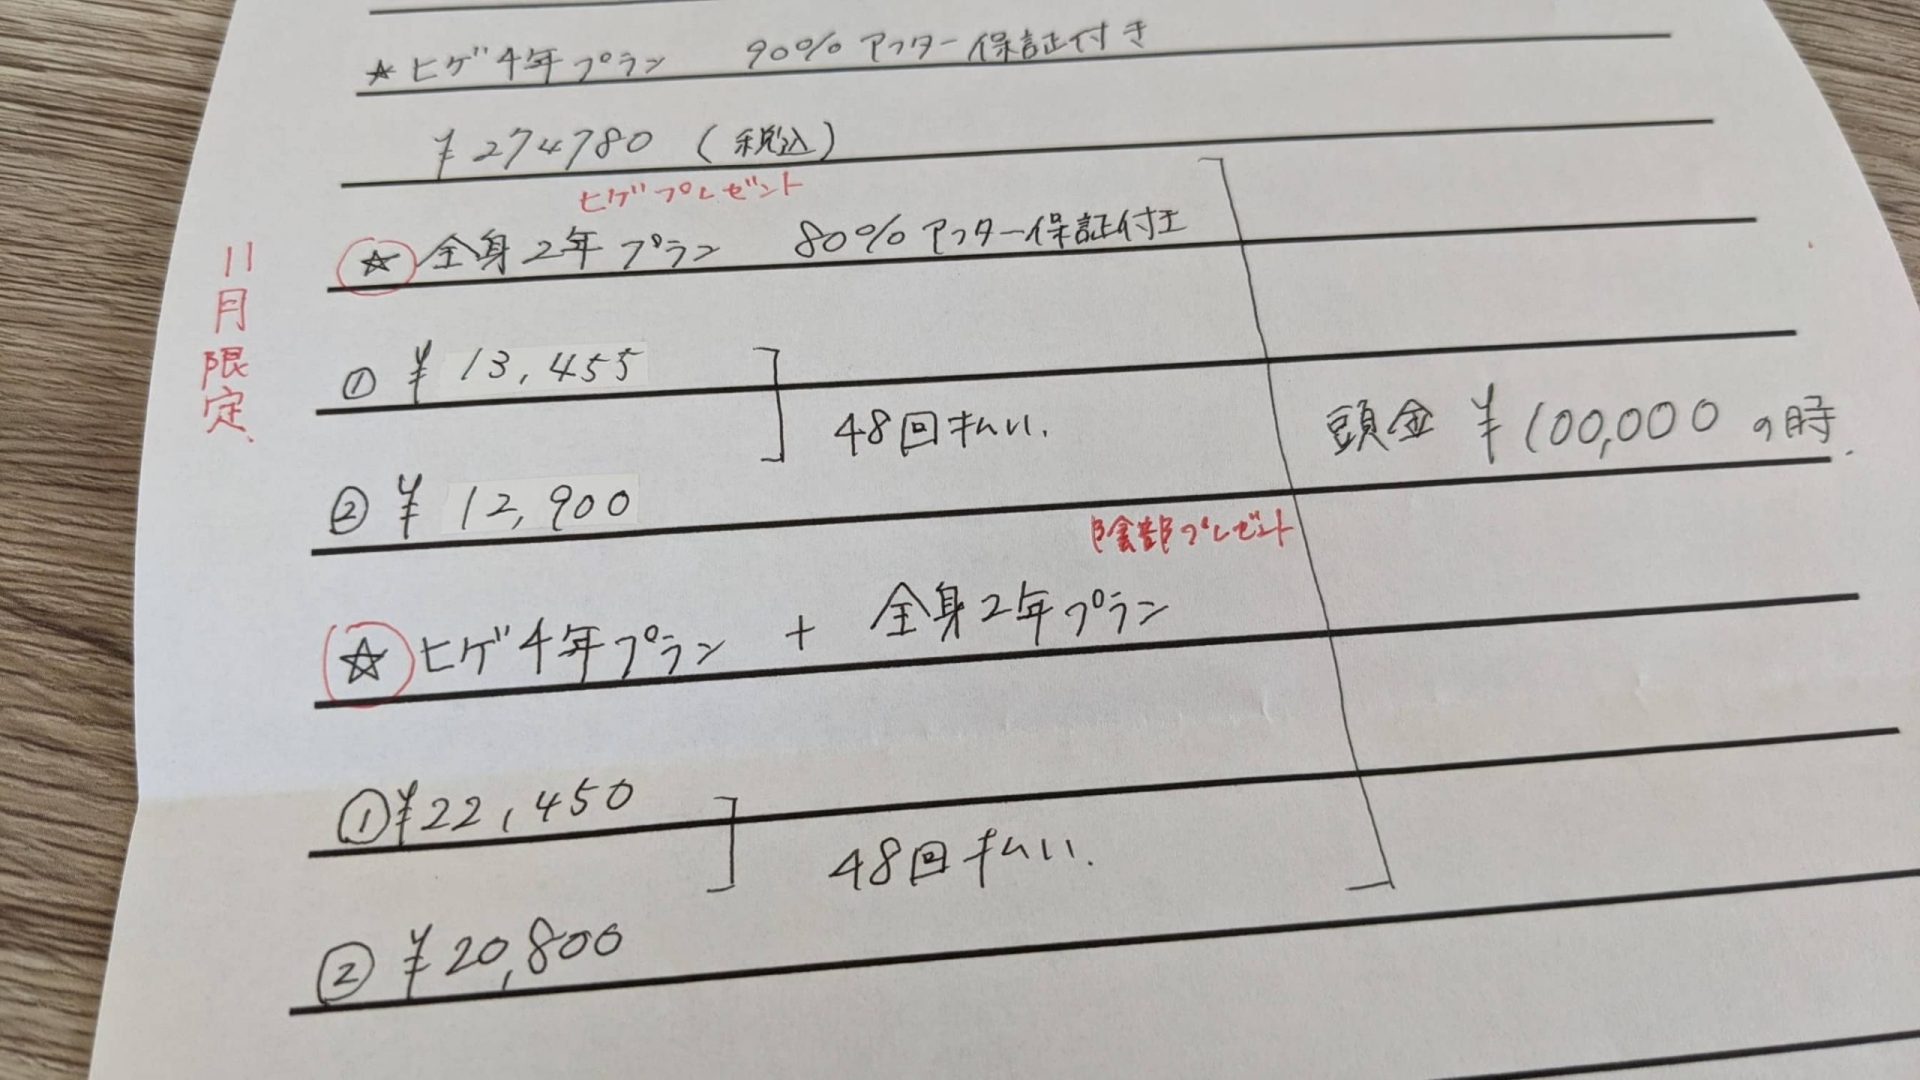 ☆ヒゲ4年プラン 90%アフター保証付き
¥274780 (税込)
ヒゲプレゼント
☆全身2年プラン 80%アフター保証付き
11月限定
① ¥13,455
48回払い.
頭金 ¥100,000の時.
② ¥12,900
陰部プレゼント
☆ヒゲ4年プラン + 全身2年プラン
①¥22,450
48回払い.
② ¥20,800